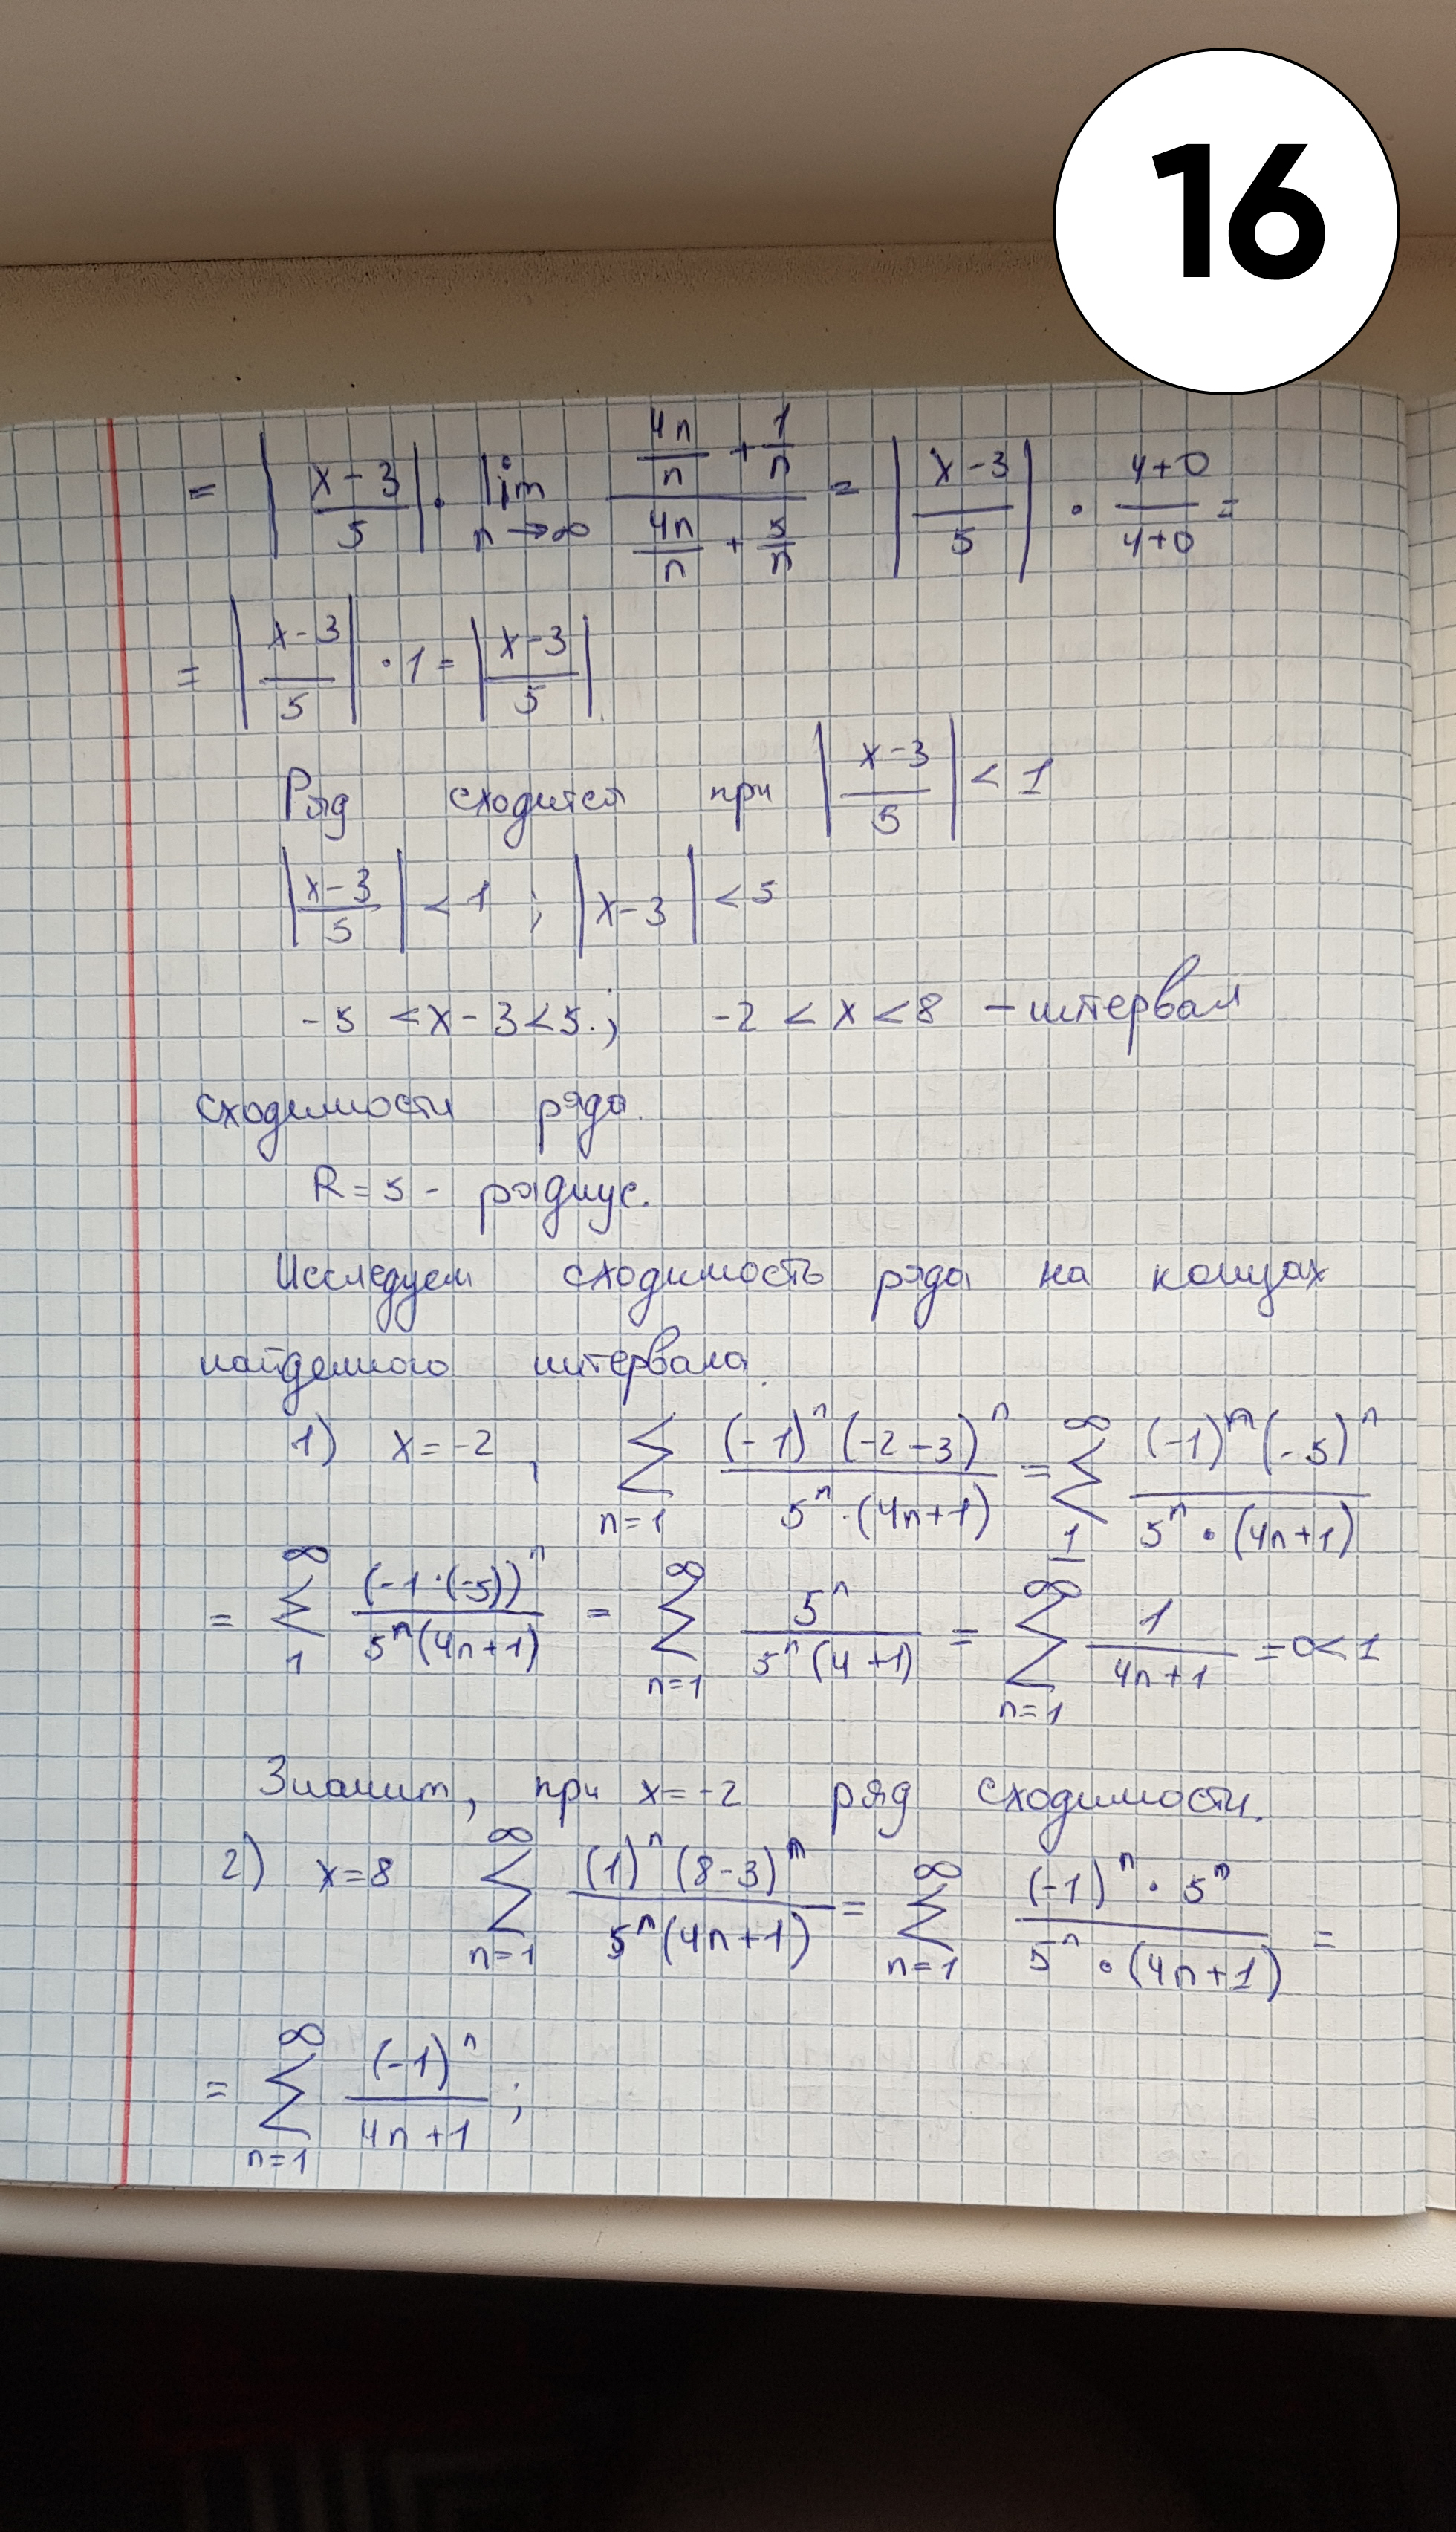 16
= |(x-3)/5| · lim n→∞ (4n/n + 1/n)/(4n/n + 5/n) = |(x-3)/5| · (4+0)/(4+0) =
= |(x-3)/5| · 1 = |(x-3)/5|
Ряд сходится при |(x-3)/5| < 1
|(x-3)/5| < 1 ; |x-3| < 5
-5 < x-3 < 5.; -2 < x < 8 - интервал
сходимости ряда.
R = 5 - радиус.
Исследуем сходимость ряда на концах
найденного интервала.
1) x = -2, ∑ n=1 (-1)^n (-2-3)^n / 5^n·(4n+1) = ∑ 1 ∞ (-1)^n (-5)^n / 5^n • (4n+1)
= ∑ 1 ∞ (-1·(-5))^n / 5^n (4n+1) = ∑ n=1 ∞ 5^n / 5^n (4 +1) = ∑ n=1 ∞ 1 / 4n+1 = 0 < 1
Значит, при x = -2 ряд сходимости.
2) x = 8 ∑ n=1 ∞ (1)^n (8-3)^n / 5^n (4n+1) = ∑ n=1 ∞ (-1)^n · 5^n / 5^n • (4n+1) =
= ∑ n=1 ∞ (-1)^n / 4n+1 ;